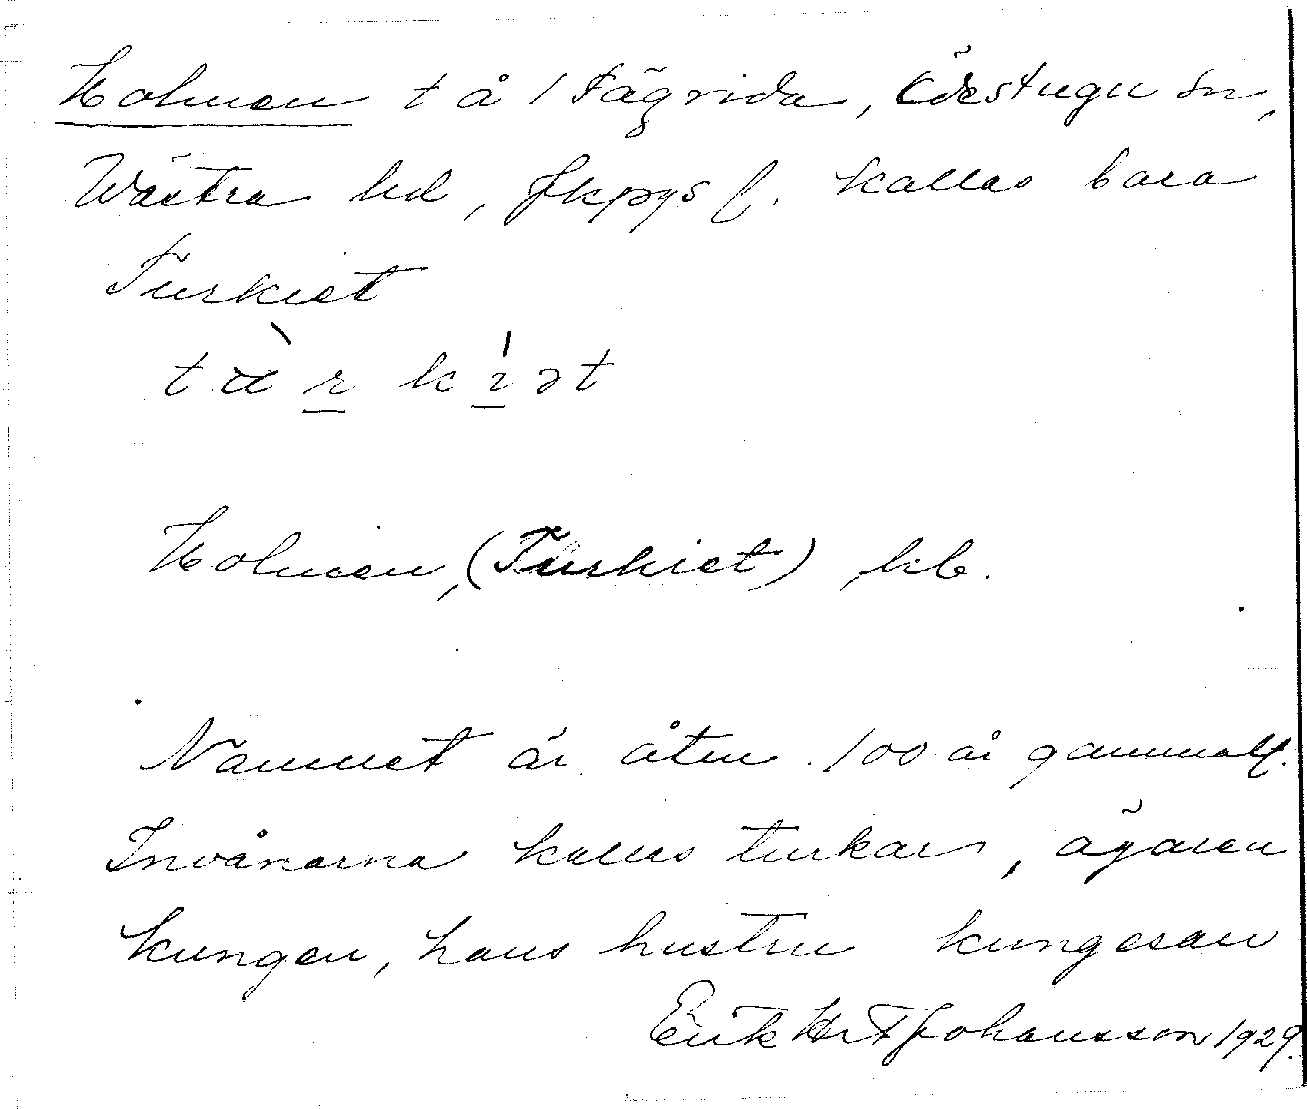 Holmen t å 1 Fägrida, Östugu sn,
Wästra hd, Jkpgs l. kallas bara
Turkiet
Holmen, (Turkiet) kb.
Namnet är åtm. 100 år gammalt.
Invånarna kallas turkar, ägaren
kungen, hans hustru kungesan
Erik Johansson 1929.